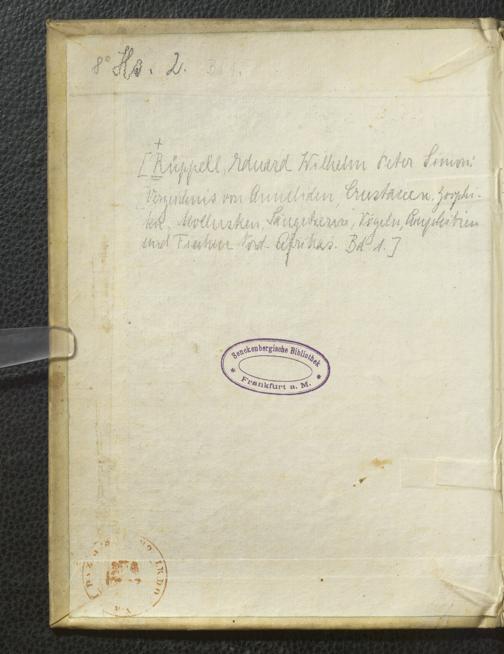 8° Hs. 2. Bd 1.
[Rüppell, Eduard Wilhelm Peter Simon:
Verzeichnis von Anneliden, Crustaceen, Zoophi-
ten, Mollusken, Säugetieren, Vögeln, Amphibien
und Fischen Nord-Afrikas. Bd 1.]
Senckenbergische Bibliothek
* Frankfurt a. M. *